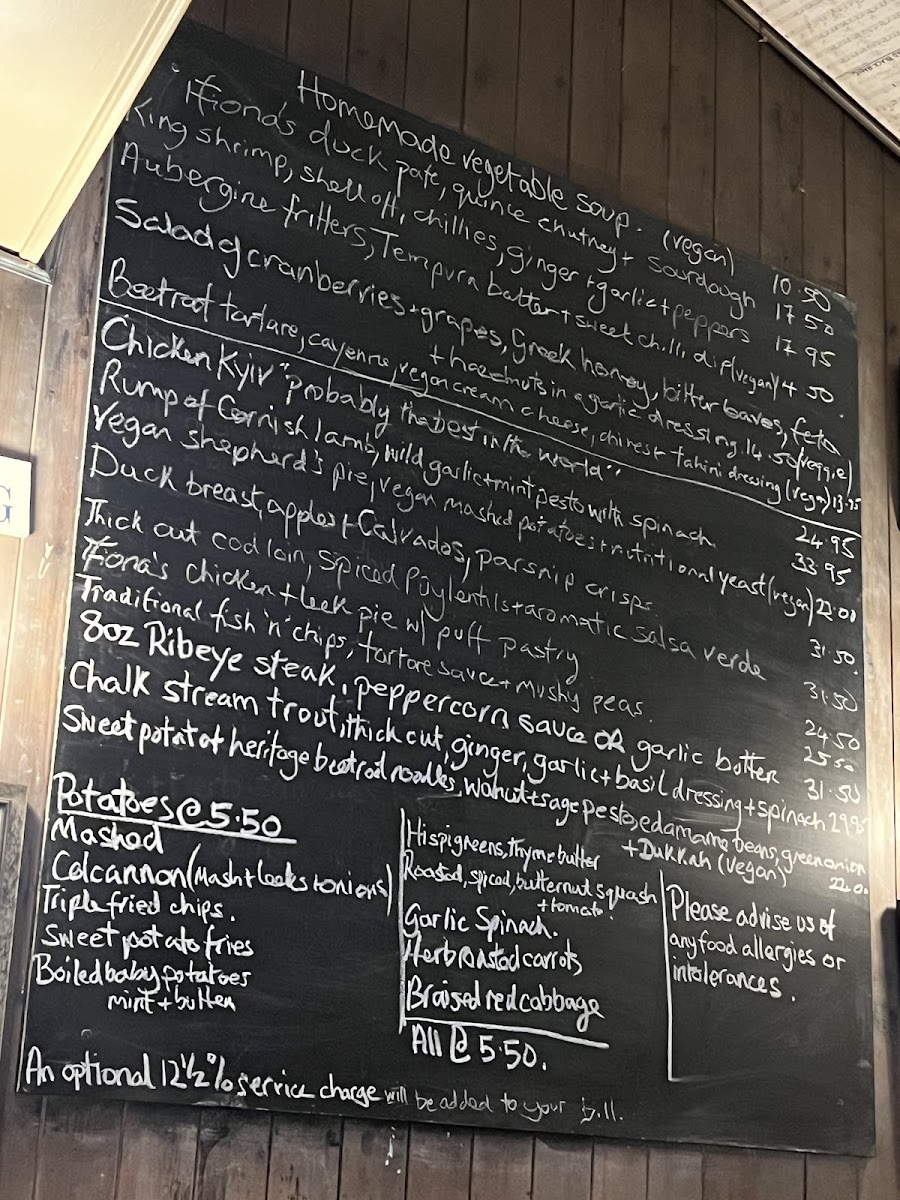 Homemade vegetable soup. (vegan) 10.50
Fiona's duck pate, quince chutney + sourdough 17 50
King shrimp, shell off, chillies, ginger + garlic + peppers 17.95
Aubergine fritters, Tempura batter + sweet chilli dip (vegan) 14.50.
Salad of cranberries + grapes, Greek honey, bitter leaves, feta
+ hazelnuts in a garlic dressing 14.50 (veggie)
Beetroot tartare, cayenne, vegan cream cheese, chinese tahini dressing (vegan) 13.95
Chicken Kyiv "probably the best in the world" 24.95
Rump of Cornish lamb, wild garlic + mint pesto with spinach 33.95
Vegan shepherd's pie, vegan mashed potatoes + nutritional yeast (vegan) 22.00
Duck breast, apples + Calvados, parsnip crisps 31.50.
Thick cut cod loin, spiced Puy lentils + aromatic salsa verde 31.50
Fiona's chicken + leek pie w/ puff pastry 24.50
Traditional fish 'n' chips, tartare sauce + mushy peas. 25.50
8oz Ribeye steak, peppercorn sauce OR garlic butter 31.50
Chalk stream trout, thick cut, ginger, garlic + basil dressing + spinach 29.95
Sweet potato + heritage beetroot noodles, walnut + sage pesto, edamame beans, green onion
+ Dukkah (vegan) 22.00
Potatoes @ 5.50
Mashed
Colcannon (Mash + leeks + onions)
Triple fried chips.
Sweet potato fries
Boiled baby potatoes
mint + butter
Hispi greens, thyme butter
Roasted, spiced, butternut squash
+ tomato.
Garlic Spinach.
Herb roasted carrots
Braised red cabbage
All @ 5.50.
Please advise us of
any food allergies or
intolerances.
An optional 12 1/2 % service charge will be added to your bill.